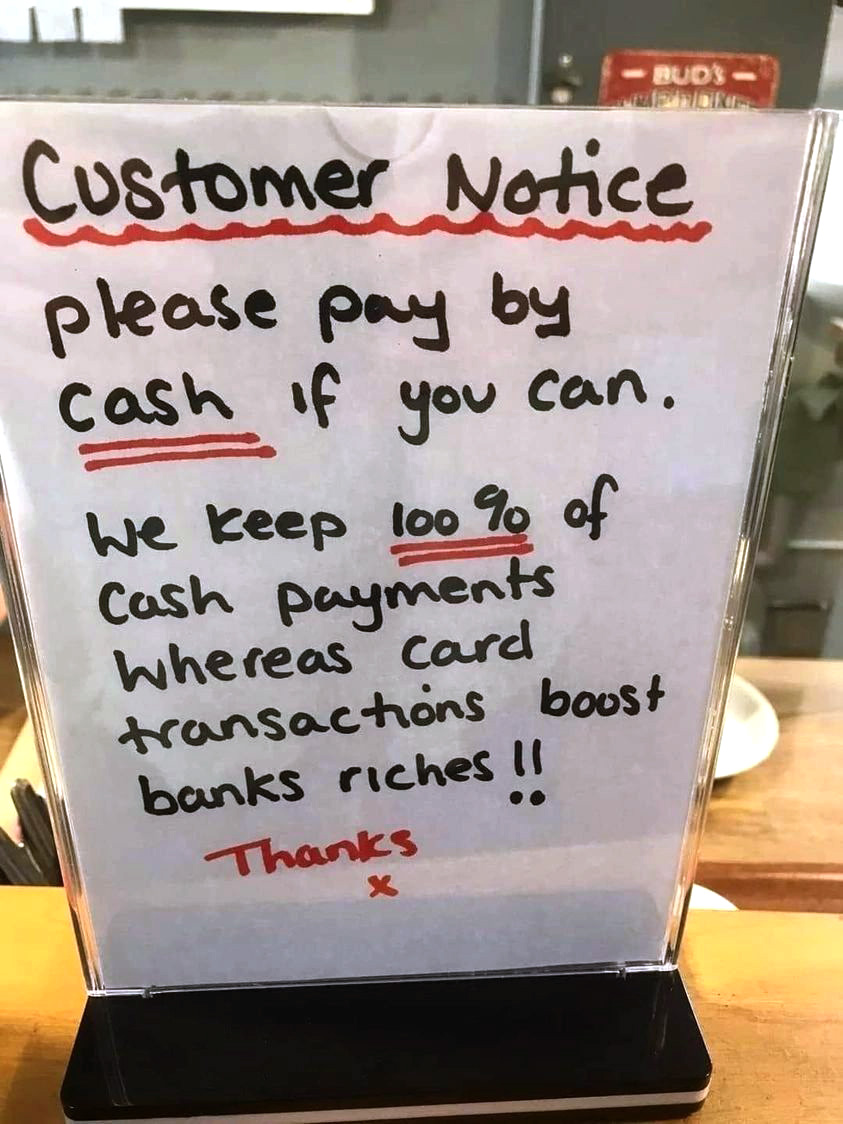 - BUD'S -
Customer Notice
please pay by
cash if you can.
We keep 100% of
Cash payments
Whereas card
transactions boost
banks riches!!
Thanks
x